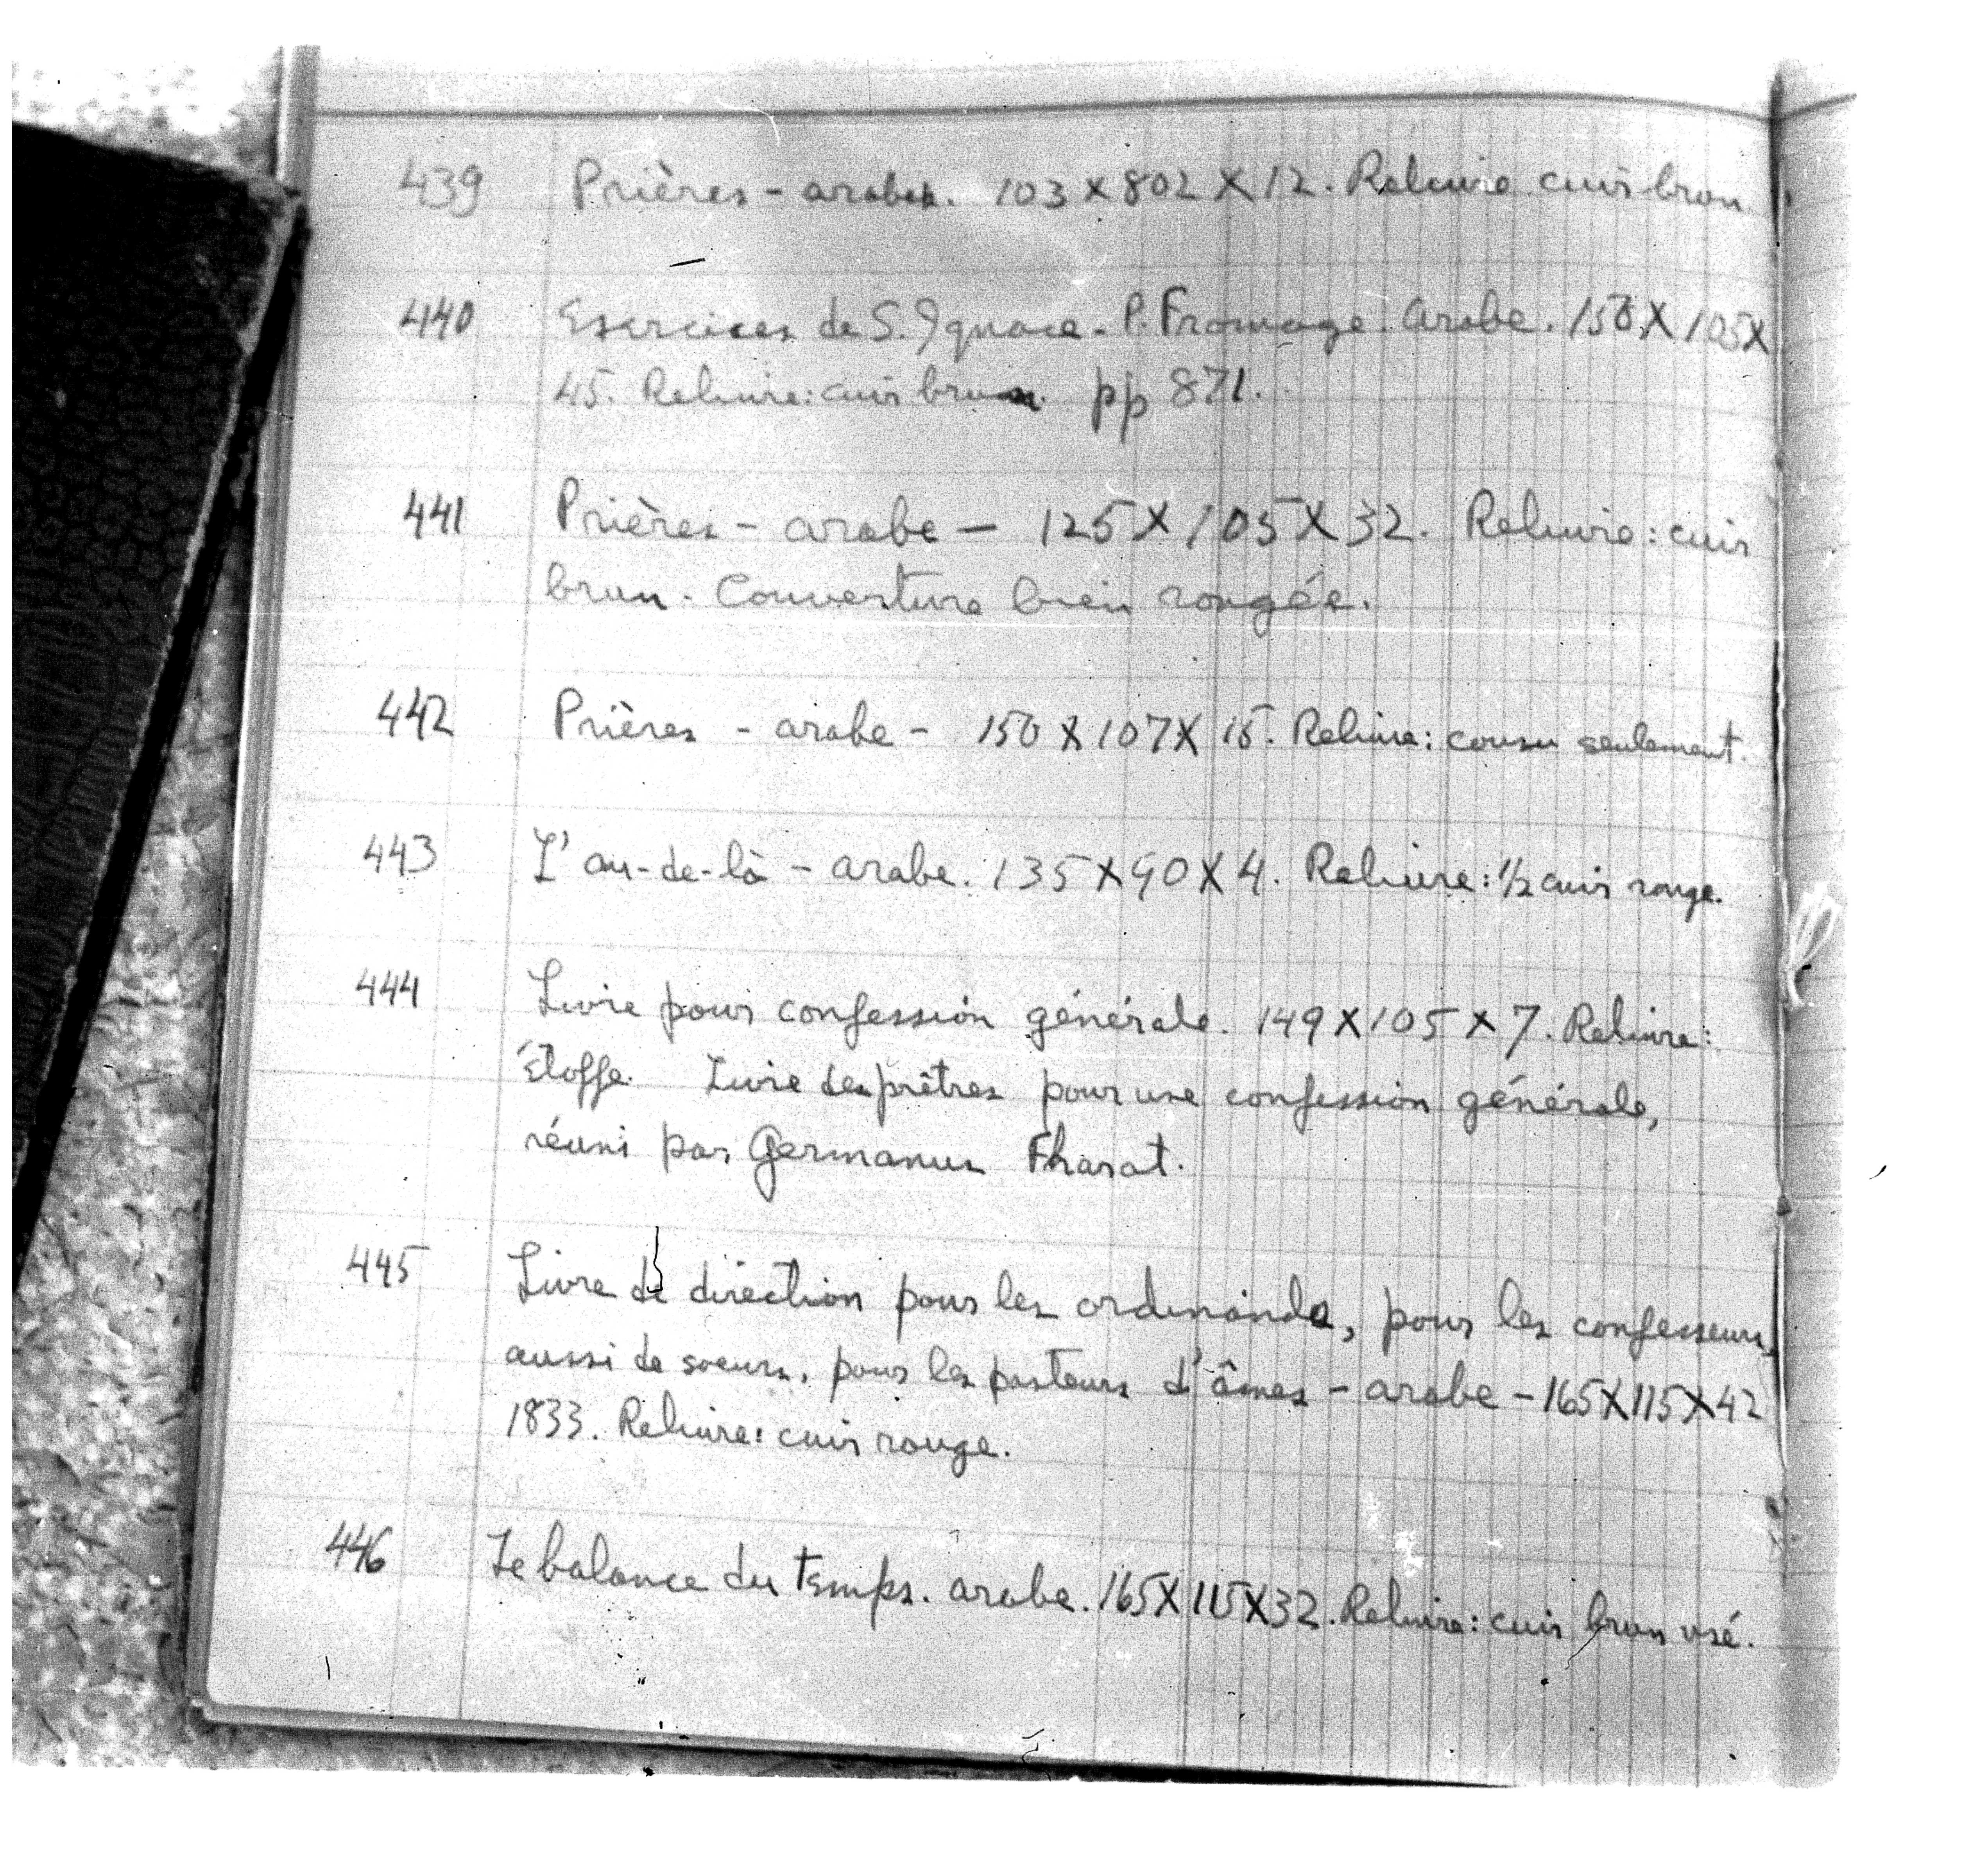 439 Prières - arabes. 103 X 802 X 12. Reliure cuir brun
440 Exercices de S. Ignace - P. Fromage. Arabe. 150 X 105 X
45. Reliure: cuir brun. pp 871.
441 Prières - arabe - 125 X 105 X 32. Reliure: cuir
brun. Couverture bien rongée.
442 Prières - arabe - 150 X 107 X 15. Reliure: cousu seulement.
443 L'au-de-là - arabe. 135 X 90 X 4. Reliure: 1/2 cuir rouge.
444 Livre pour confession générale. 149 X 105 X 7. Reliure:
Étoffe. Livre des prêtres pour une confession générale,
réuni par Germanus Fharat.
445 Livre de direction pour les ordinands, pour les confesseurs,
aussi de soeurs, pour les pasteurs d'âmes - arabe - 165 X 115 X 42
1833. Reliure: cuir rouge.
446 Le balance du temps. arabe. 165 X 115 X 32. Reliure: cuir brun usé.